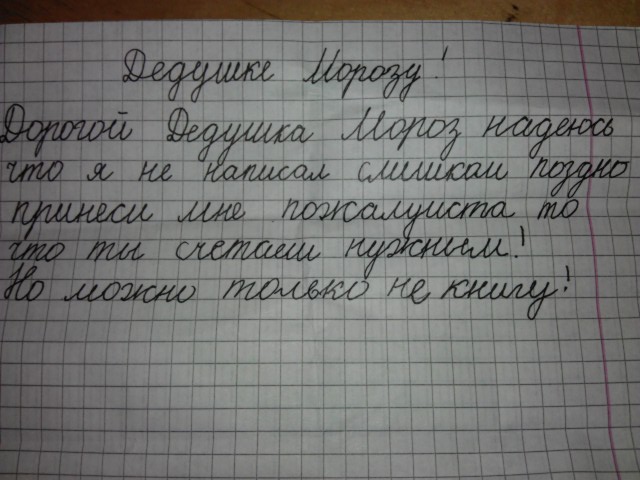 Дедушке Морозу!
Дорогой Дедушка Мороз надеюсь
что я не написал слишкам поздно
принеси мне пожалуиста то
что ты счетаеш нужным!
Но можно только не книгу!